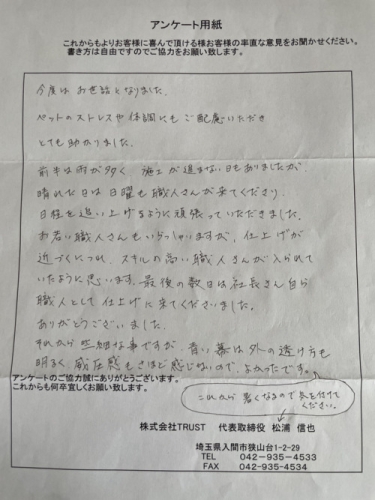 アンケート用紙
これからもよりお客様に喜んで頂ける様お客様の率直な意見をお聞かせください。
書き方は自由ですのでご協力をお願い致します。
今度は お世話となりました。
ペットのストレスや体調にもご配慮いただき
とても助かりました。
前半は雨が多く 施工が進まない日もありましたが、
晴れた日は日曜も職人さんが来てくださり、
日程を追い上げるように頑張っていただきました。
お若い職人さんもいらっしゃいますが、仕上げが
近づくにつれ、スキルの高い職人さんが入られて
いたように思います。最後の数日は社長さん自ら
職人として仕上げに来てくださいました。
ありがとうございました。
それから些細な事ですが、青い幕は外の透け方も
明るく、威圧感もさほど感じないので、よかったです。
アンケートのご協力誠にありがとうございます。
これからも何卒宜しくお願い致します。
これから暑くなるので気を付けて
ください。
株式会社TRUST 代表取締役 松浦 信也
埼玉県入間市狭山台1-2-29
TEL 042-935-4533
FAX 042-935-4534